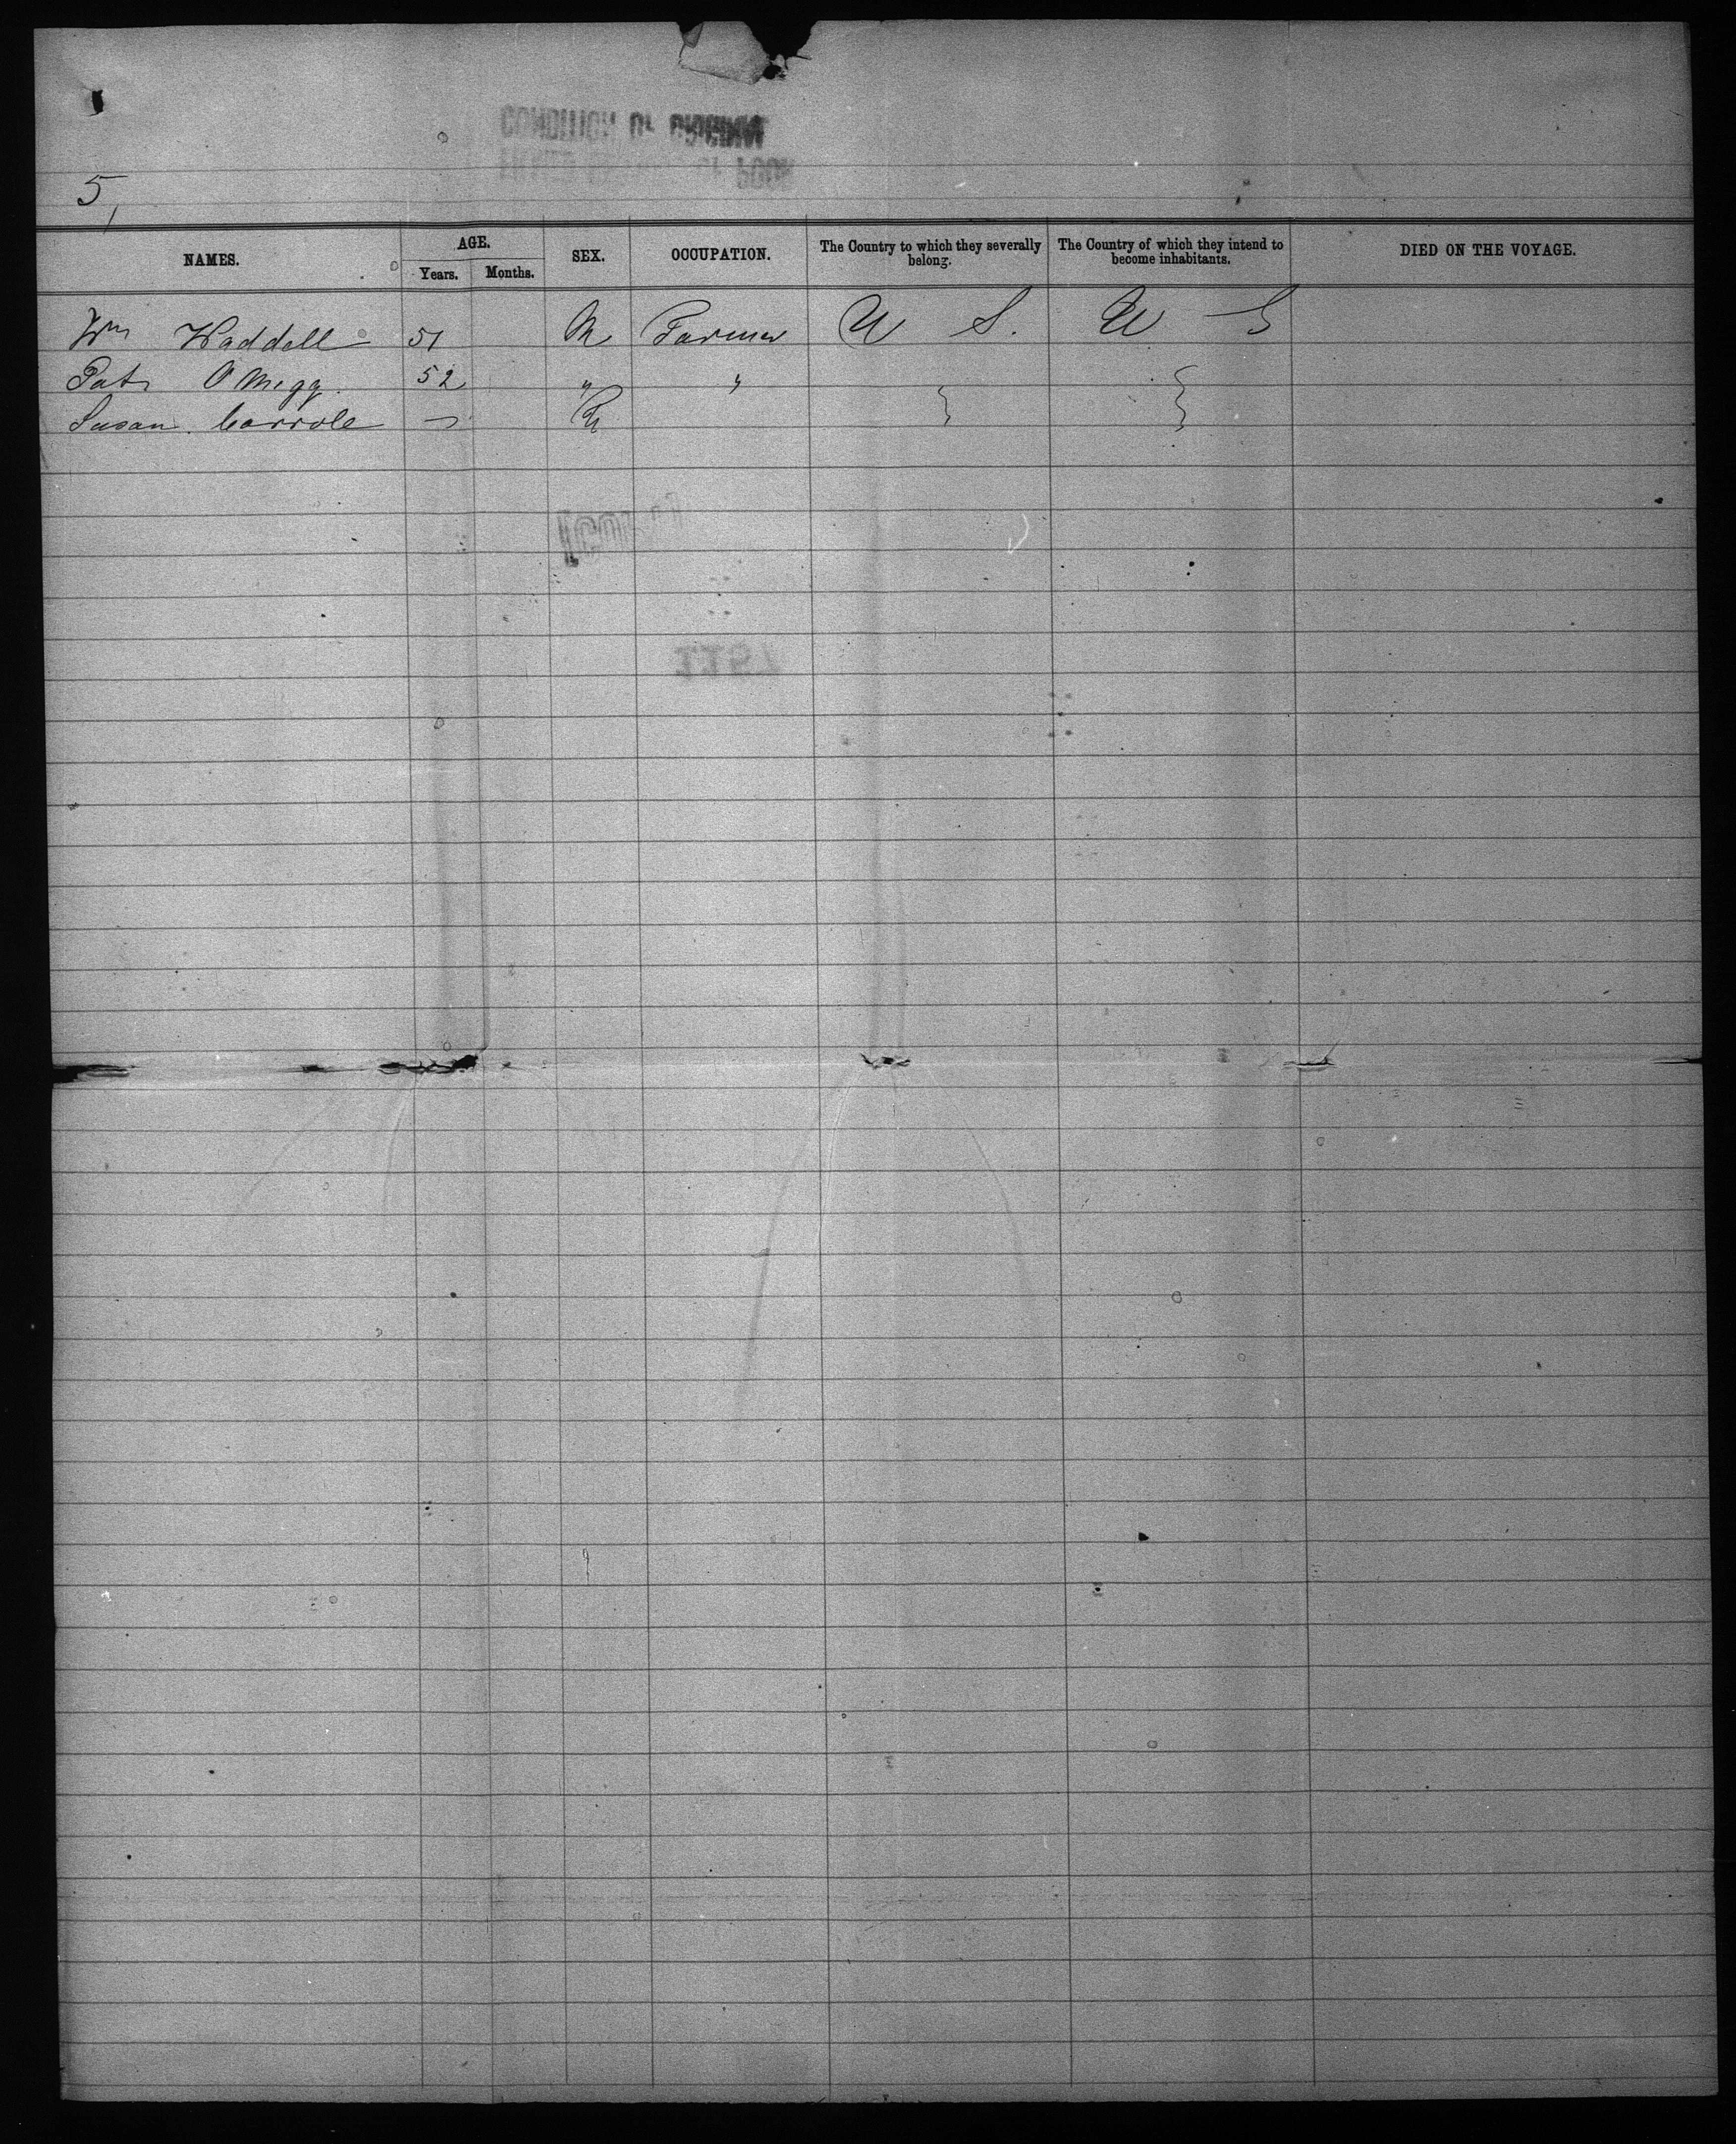 CONDITION OF ORIGINAL
5,
NAMES. AGE. SEX. OCCUPATION. The Country to which they severally belong. The Country of which they intend to become inhabitants. DIED ON THE VOYAGE.
Years. Months.
Wm Waddell 51 M Farmer U S. U S
Patr 52 " "
Susan Carrole —
1157